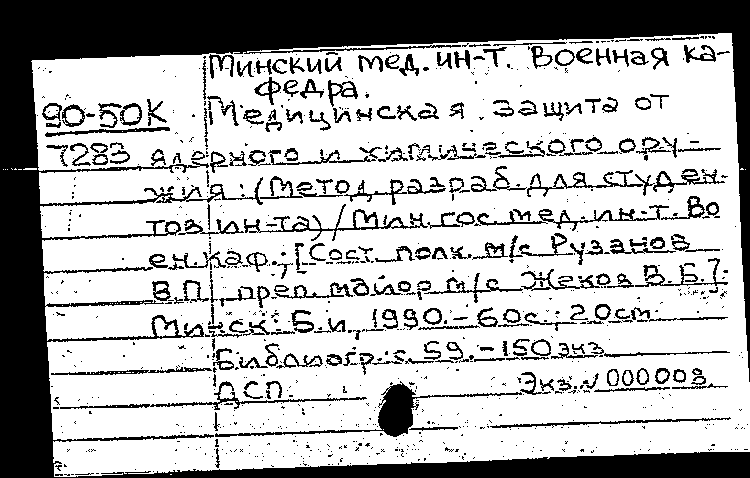 Минский мед. ин-т. Военная ка-
федра.
90-50К Медицинская защита от
7283 ядерного и химического ору-
жия: (Метод. разраб. для студен-
тов ин-та) / Мин. гос. мед. ин-т. Во
ен. каф.; [Сост. полк. м/с Рузанов
В.П., преп. майор м/с Жеков В.Б.].
Минск: Б.и, 1990. - 60с.; 20cm.
Библиогр.: с. 59. - 150 экз
ДСП. Экз. N 000003.